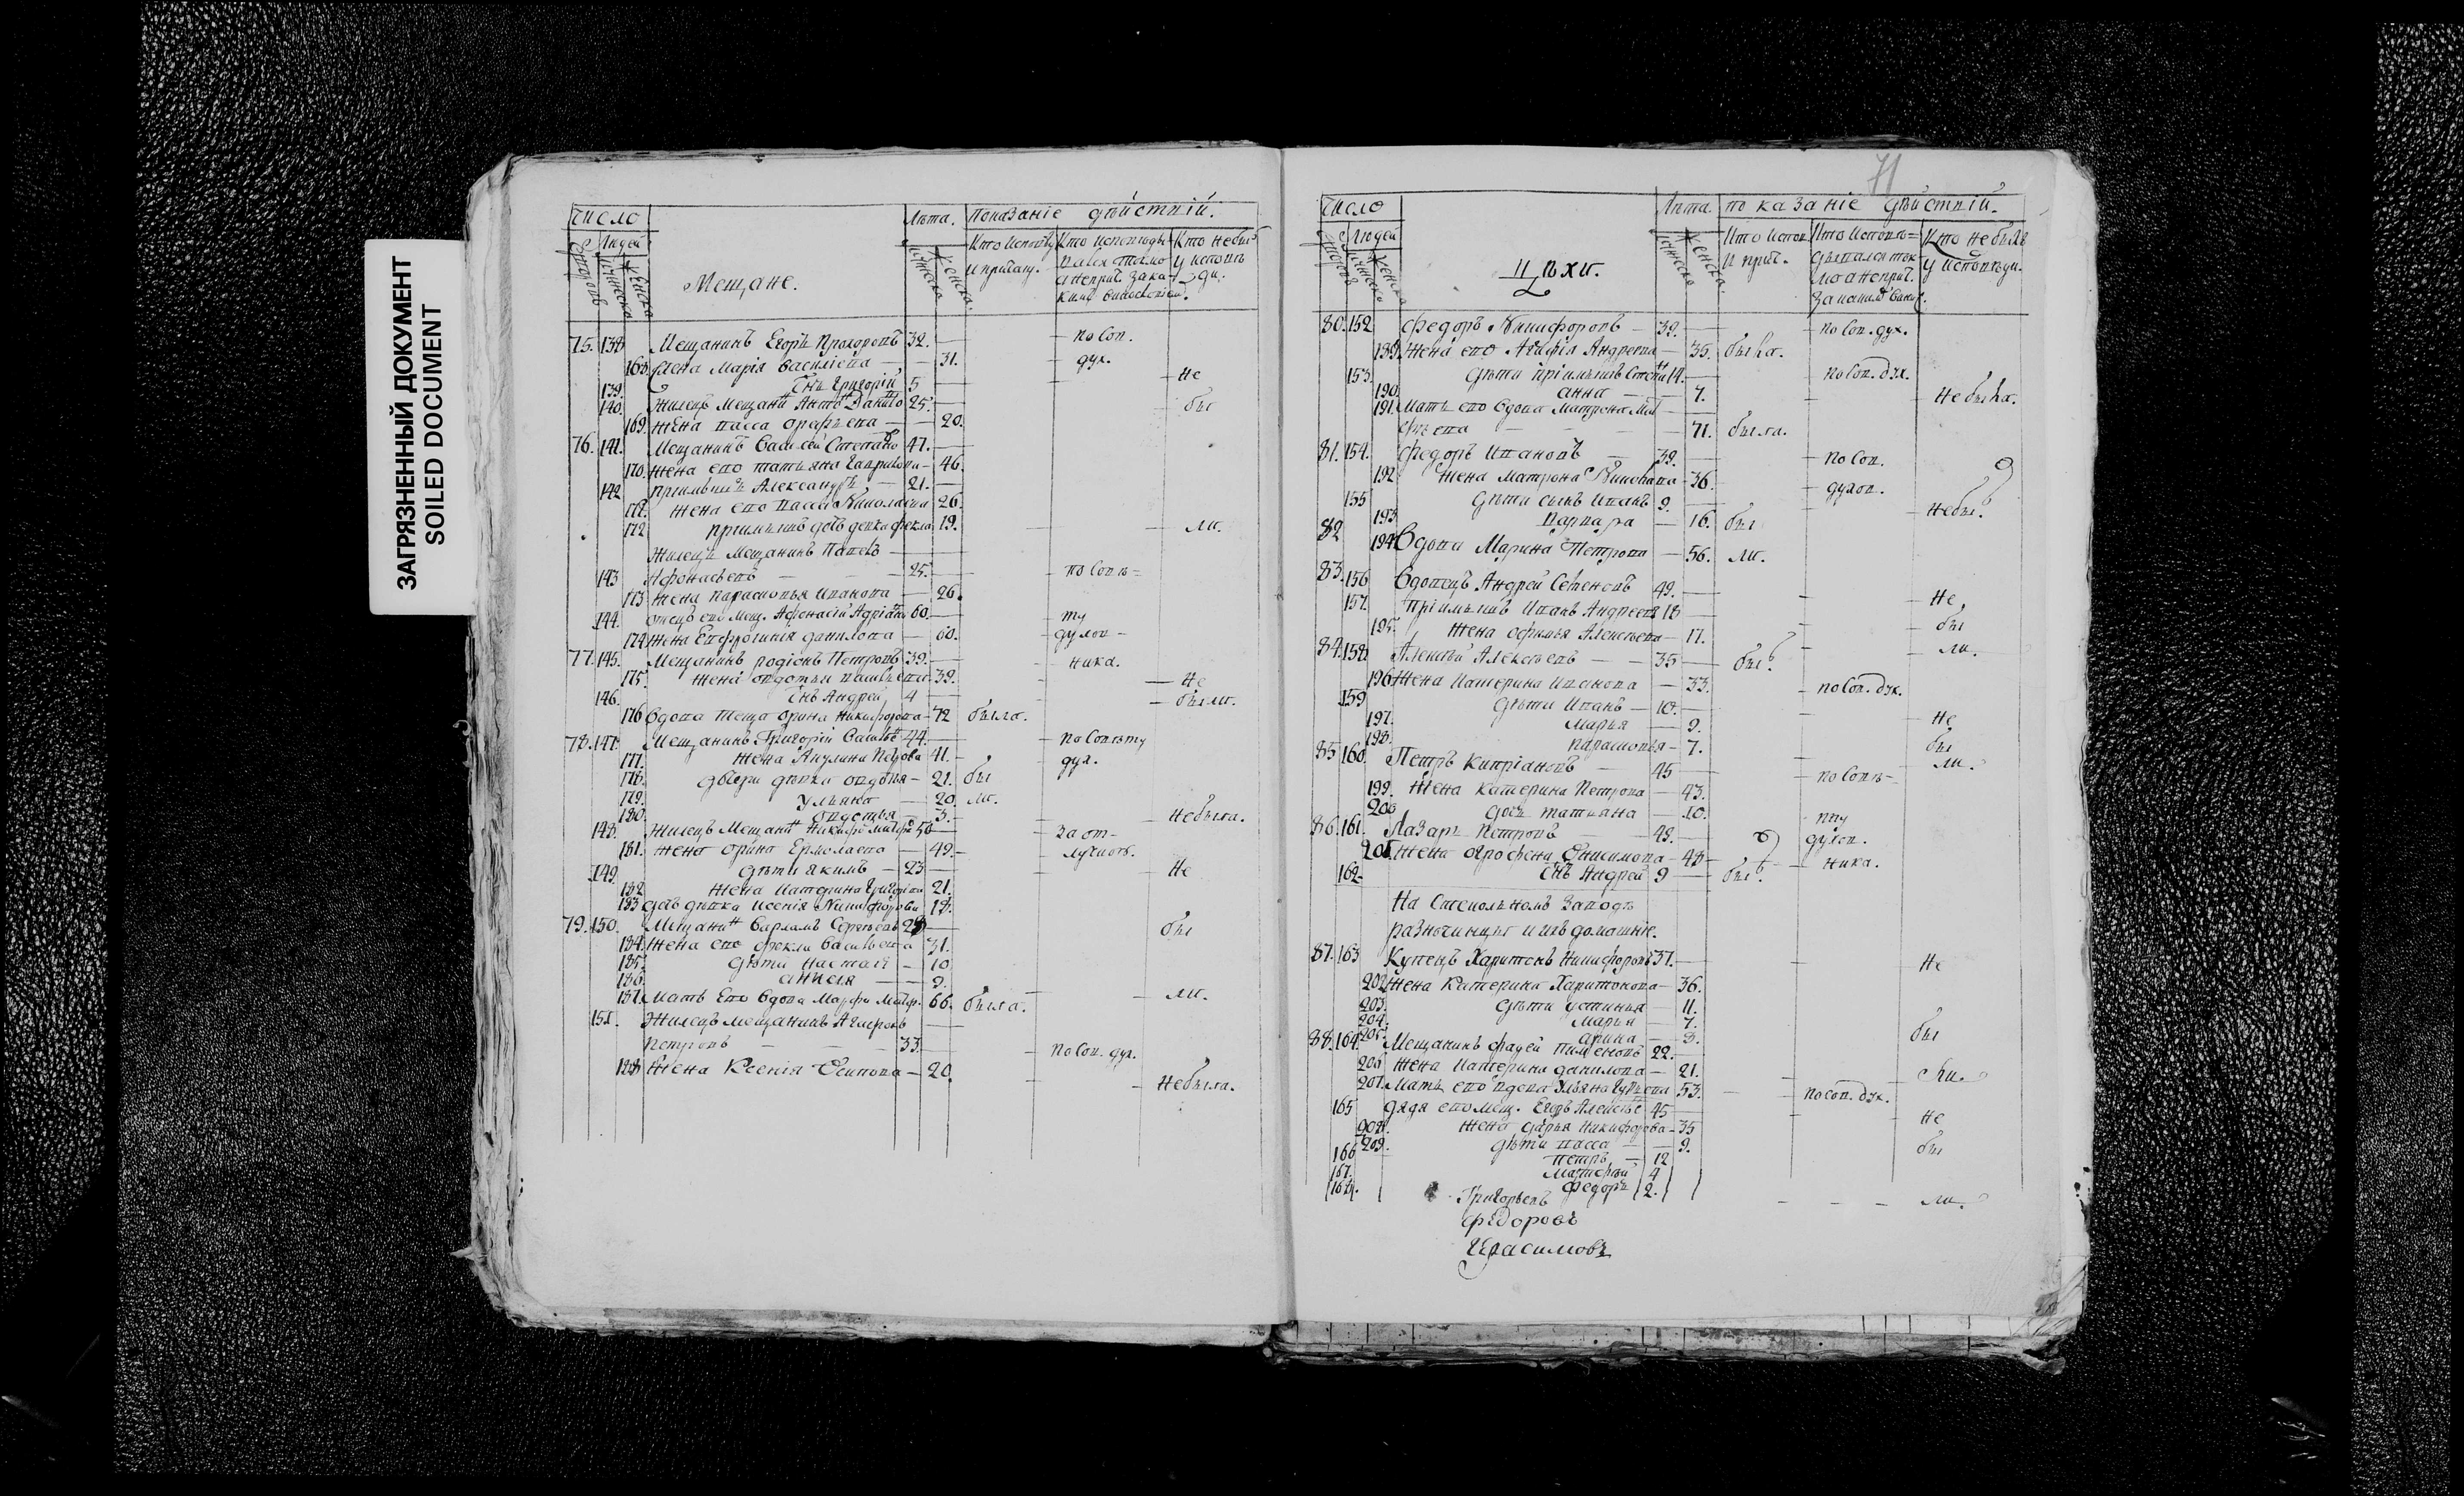 ЗАГРЯЗНЕННЫЙ ДОКУМЕНТ
SOILED DOCUMENT
Число
Людей
Мещане.
Лѣта.
Показаніе дѣйствій.
Кто исповѣд и причащ.
Кто исповѣды-
вался токмо
а неприч. за ка-
кимъ винословіем.
Кто небыл
у исповѣ
ди.
75. 138 Мещанинъ Егоръ Прохоровъ 32. по Сов.
168. Жена Марія Василіева 31. дух.
139. Снъ Григорій 5 Не
140. Жилецъ Мещанн Антонъ Данило 25. бы
169. Жена Васса Орефьева 20.
76. 141. Мещанинъ Василей Степано 47.
170. Жена его татьяна Гаврилова 46.
142 пріимышъ Александръ 21.
171. Жена его Васса Николаева 26.
172 пріимышъ дочь дѣвка фекла 19. ли.
Жилецъ Мещанинъ Павелъ
143 Афонасьевъ 25. по Совѣ-
173 Жена Парасковья Иванова 26.
144. отецъ его Мещ. Афонасій Адріанъ 60. ту
174 Жена Евфросинія данилова 60. духов-
77. 145. Мещанинъ родіонъ Петровъ 39. ника.
175. Жена овдотья 39. Не
146. Снъ Андрей 4 были.
176 Вдова теща Орина Никифорова 72 была.
78. 147. Мещанинъ Григорій Василье 44. по Совѣту
177. Жена Акулина 41. дух.
178. дѣвка овдотья 21. бы
179. Ульяна 20. ли.
180. овдотья 3. Небыла.
148. Жилецъ Мещанн Никифо 50 за от-
181. Жена Орина Ермолаева 49. лучкою.
149. дѣти Якимъ 23 Не
182. Жена Катерина Григорьева 21.
183 дочь дѣвка Ксенія Никифорова 18.
79. 150. Мещанн Варламъ Сергѣевъ 28 бы
184. Жена его Фекла Васильева 31.
185. дѣти Настасія 10
186. анисія 9.
187. Мать Его Вдова Марфа Матф. 66. была. ли.
151. Жилецъ мещанинъ
Петровъ 33. по Сов. дух.
188 Жена Ксенія Осипова 20. Небыла.
71
Число
Людей
Цѣхи.
Лѣта.
показаніе дѣйствій.
Кто испов
и прич.
Кто исповѣ=
дывался ток
мо а неприч.
за какимъ Винос.
Кто не былъ
у исповѣди.
80. 152 Федоръ Никифоровъ 39. по Сов. дух.
189. Жена его Агафія Андреева 35. была.
153. дѣти пріимышъ Степан 14. по Сов. дух.
190. анна 7. Не была.
191. Мать его Вдова Матрена Мат
фѣева 71. была.
81. 154. Федоръ Ивановъ 39. по Сов.
192 Жена Матрона 36. духов.
155 дѣти сынъ Иванъ 9. Небы
193. Варвара 16. бы
82 194 Вдова Марина Петрова 56. ли.
83. 156 Вдовецъ Андрей Семеновъ 49.
157. Пріимышъ Иванъ Андреевъ 18 Не
195. Жена Офимья Алексѣева 17. бы
84. 158 Алексѣй Алексѣевъ 35 былъ. ли.
196 Жена Катерина Иванова 33. по Сов. дух.
159 дѣти Иванъ 10.
197. Марья 9. Не
198. парасковья 7. бы
85 160 Петръ Кипріановъ 45 ли.
199. Жена Катерина Петрова 43. по Совѣ-
200 дочь татьяна 10. ту
86. 161. Лазарь Петровъ 49. духов.
201. Жена огрофена Онисимова 48 ника.
162 Снъ Андрей 9 былъ.
На Стекольномъ Заводѣ
разночинцы и ихъ домашніе.
87. 163 Купецъ Харитонъ Никифоровъ 37. Не
202 Жена Катерина Харитонова 36.
203. дѣти устинья 11.
204. Марья 7. бы
205. арина 3.
88. 164. Мещанинъ фадей Пименовъ 22.
206 Жена Катерина данилова 21. ли.
207. Мать его вдова Ульяна Гурьева 53. по сов. дух.
165 дядя его мещ. Егоръ Алексѣе 45 Не
208. Жена дарья Никифорова 35
209. дѣти Васса 9. бы
166 петръ 12
167. Матфѣй 4
168. Федоръ 2.
Григорьевъ ли.
Федоровъ
Герасимовъ